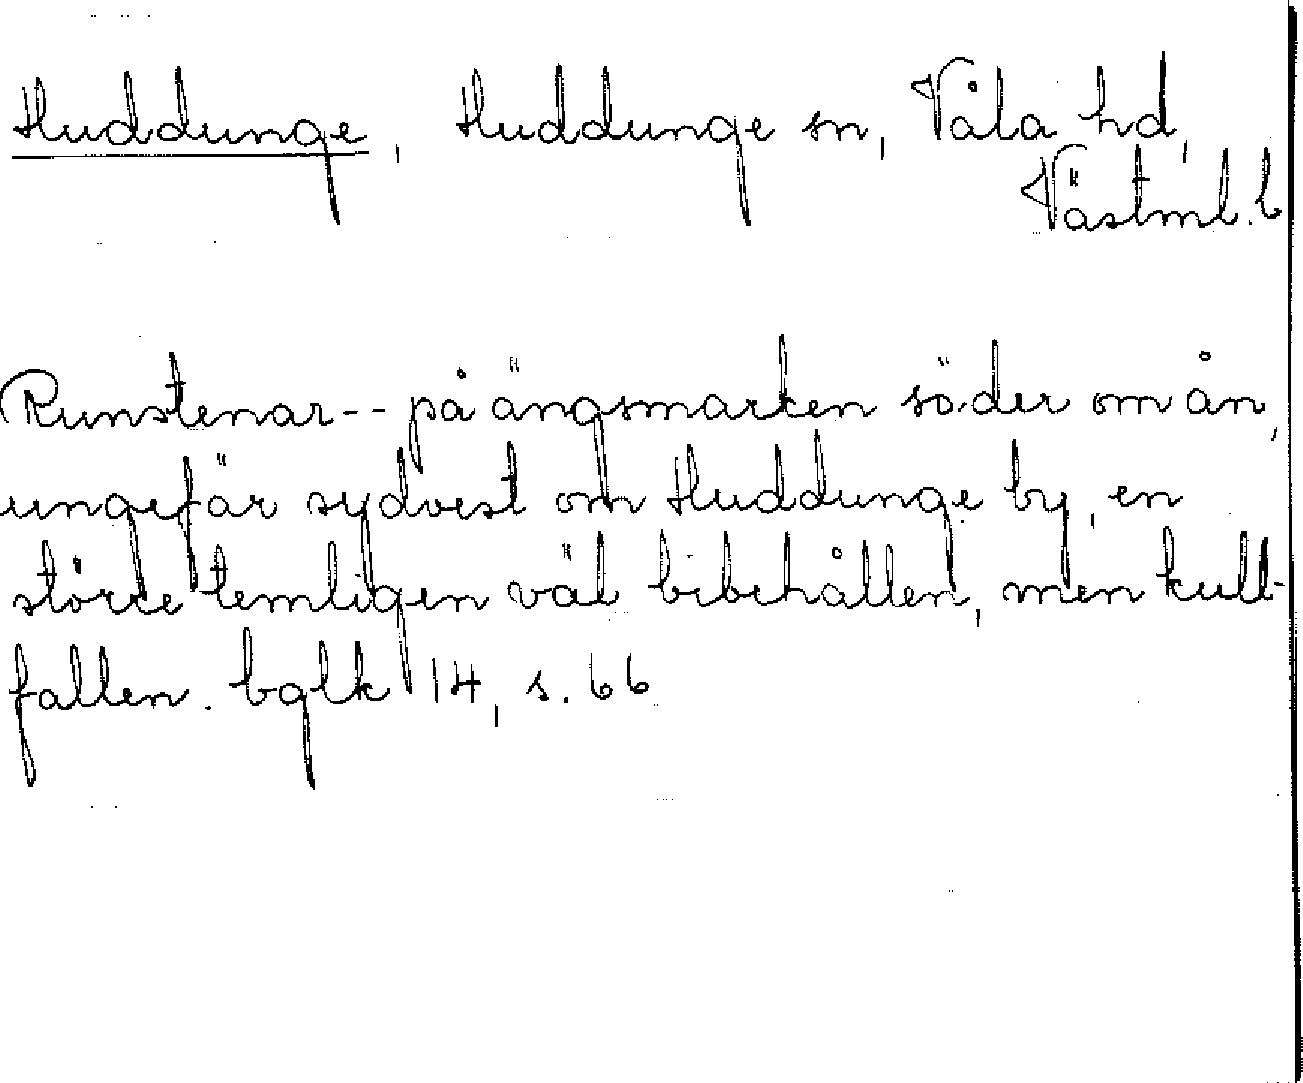 Huddunge, Huddunge sn, Våla hd,
Västml. l
Runstenar-- på ängsmarken söder om ån,
ungefär sydvest om Huddunge by, en
större temligen väl bibehållen, men kull-
fallen. bglk 14, s. 66